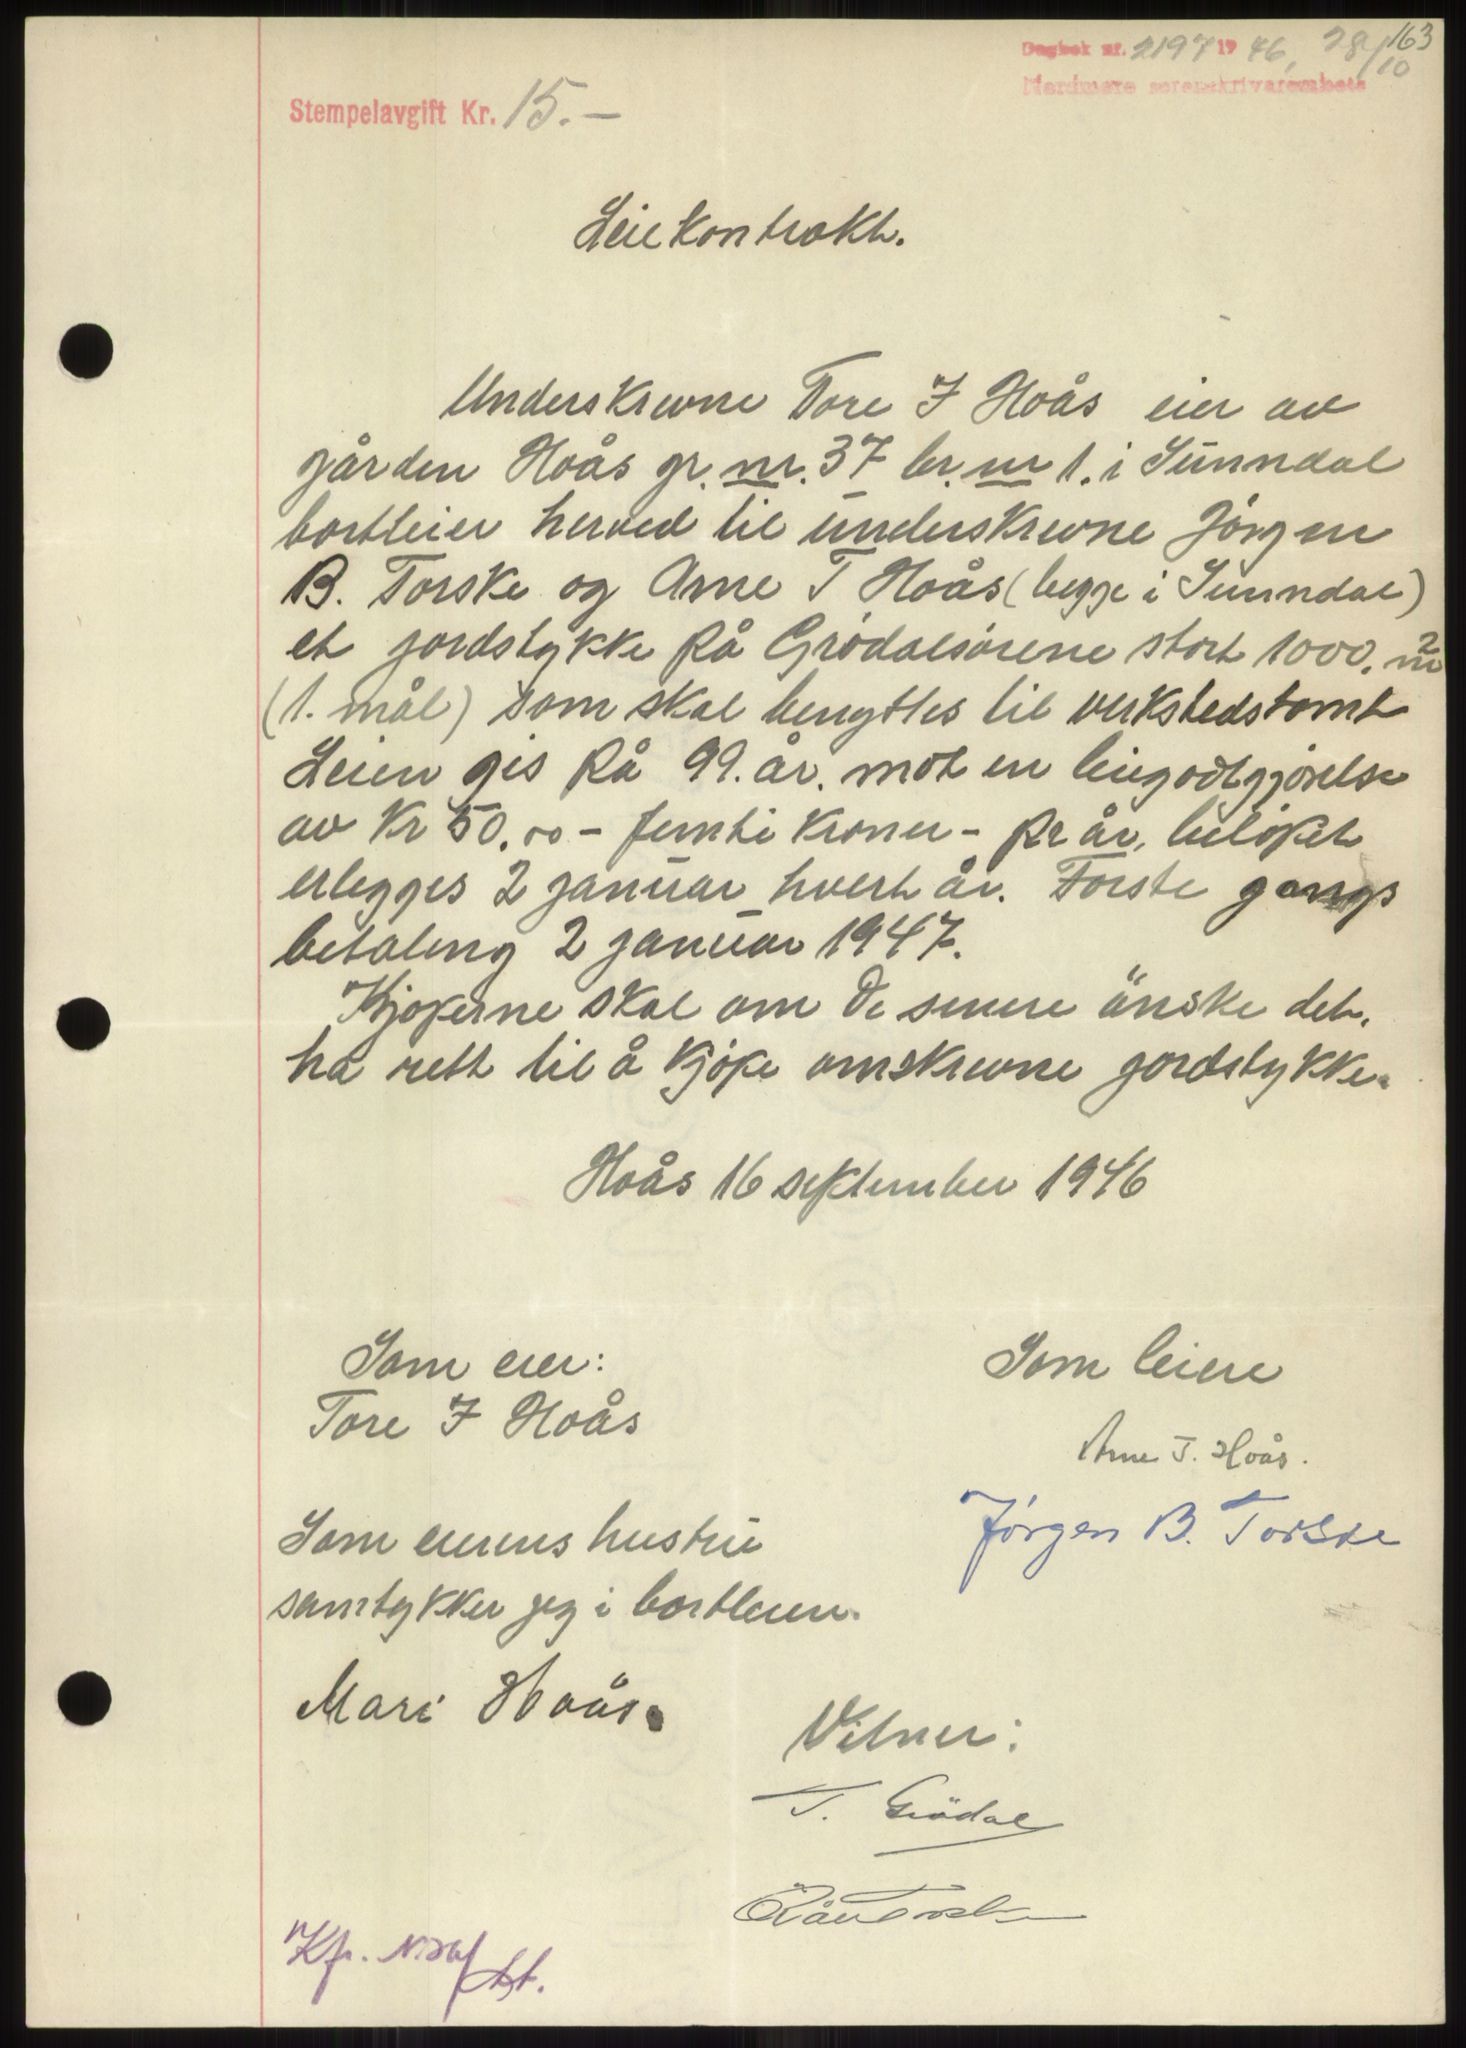 163
Dagbok nr. 2197 19 46, 28/10
Nordmøre sorenskriverembete
Stempelavgift Kr. 15.-
Leiekontrakt.
Underskrevne Tore J Hoås eier av
gården Hoås gr. nr. 37 br. nr 1. i Sunndal
bortleier herved til underskrevne Jörgen
B. Torske og Arne T Hoås (begge i Sunndal)
et jordstykke på Grödalsörene stort 1000. m²
(1. mål) som skal benyttes til verkstedstomt
Leien gis på 99. år. mot en leiegodtgjörelse
av Kr 50.00 - femti kroner - pr år, belöpet
erlegges 2 januar hvert år. Förste gangs
betaling 2 januar 1947.
Kjöperne skal om de senere önske det.
ha rett til å kjöpe omskrevne jordstykke.
Hoås 16 september 1946
Som eier:
Tore J Hoås
Som leiere
Arne T. Hoås.
Jörgen B. Torske
Som eierens hustru
samtykker jeg i bortleien.
Mari Hoås.
Vitner:
T. Grödal
Kfr.